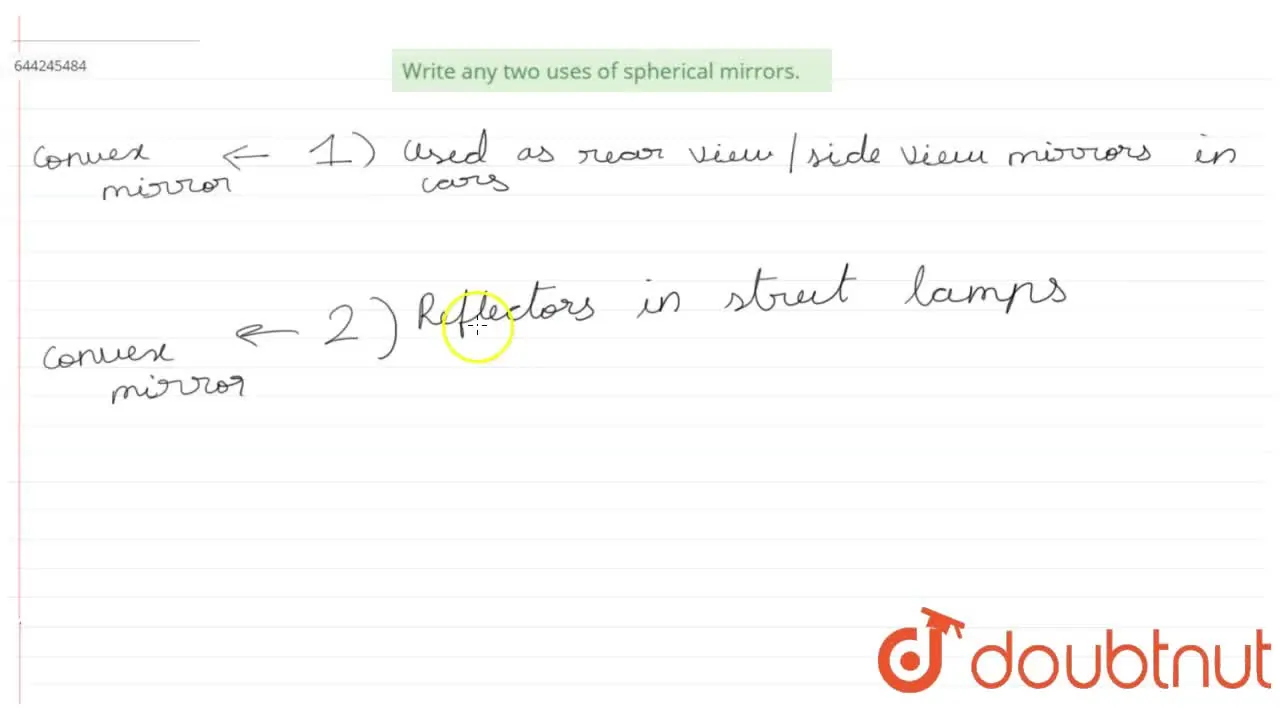 644245484
Write any two uses of spherical mirrors.
convex ← 1) Used as rear view/side view mirrors in
mirror cars
← 2) Reflectors in street lamps
convex
mirror
doubtnut